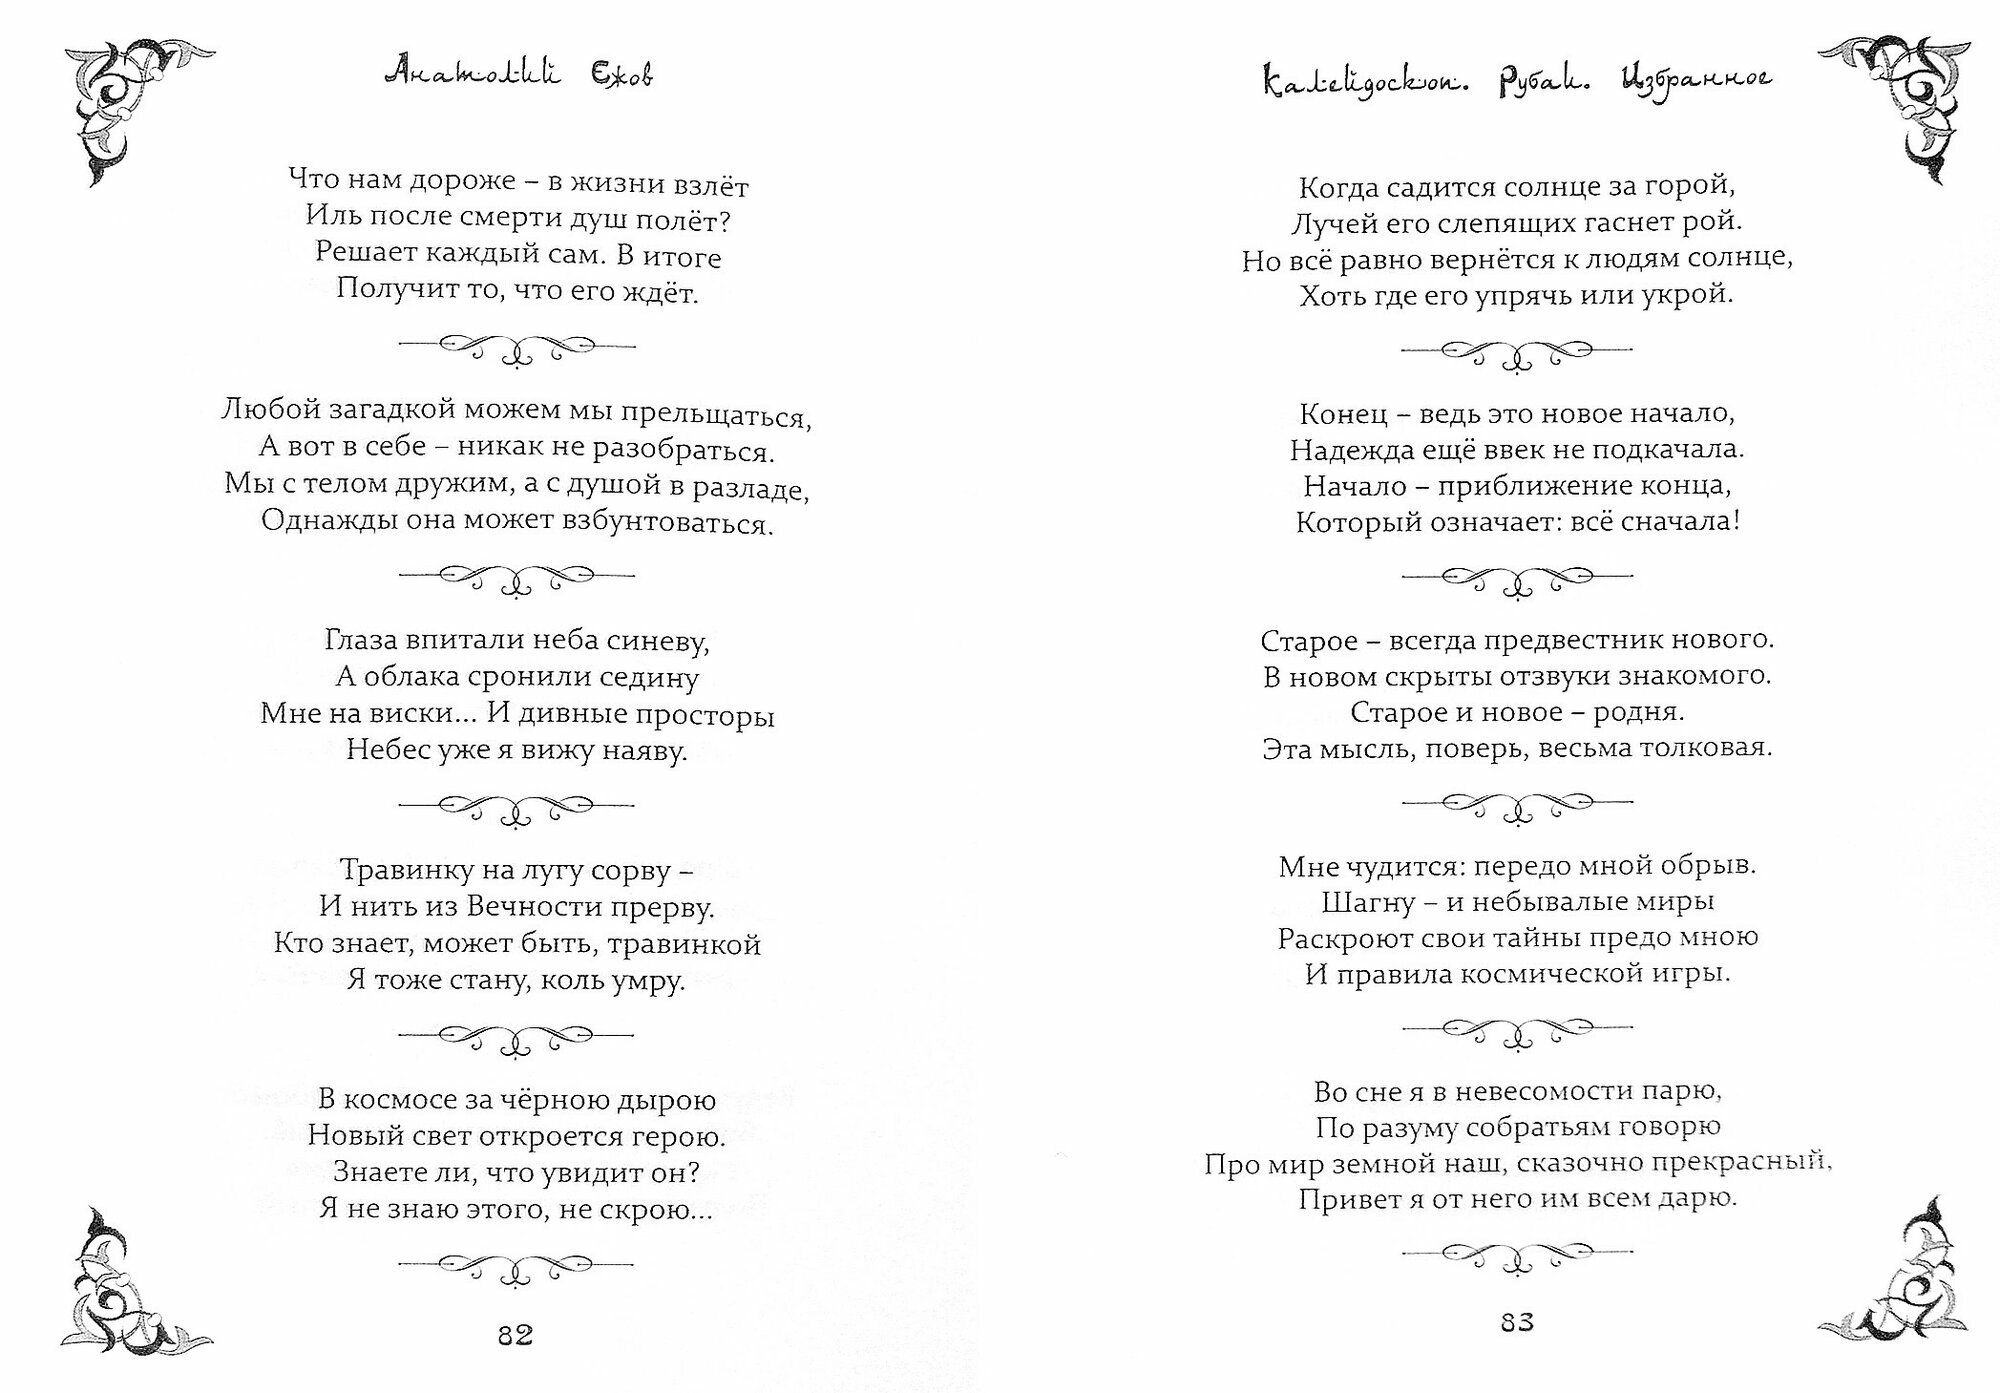 Анатолий Ежов
Что нам дороже – в жизни взлёт
Иль после смерти душ полёт?
Решает каждый сам. В итоге
Получит то, что его ждёт.
Любой загадкой можем мы прельщаться,
А вот в себе – никак не разобраться.
Мы с телом дружим, а с душой в разладе,
Однажды она может взбунтоваться.
Глаза впитали неба синеву,
А облака сронили седину
Мне на виски... И дивные просторы
Небес уже я вижу наяву.
Травинку на лугу сорву –
И нить из Вечности прерву.
Кто знает, может быть, травинкой
Я тоже стану, коль умру.
В космосе за чёрною дырою
Новый свет откроется герою.
Знаете ли, что увидит он?
Я не знаю этого, не скрою...
82
Калейдоскоп. Рубаи. Избранное
Когда садится солнце за горой,
Лучей его слепящих гаснет рой.
Но всё равно вернётся к людям солнце,
Хоть где его упрячь или укрой.
Конец – ведь это новое начало,
Надежда ещё ввек не подкачала.
Начало – приближение конца,
Который означает: всё сначала!
Старое – всегда предвестник нового.
В новом скрыты отзвуки знакомого.
Старое и новое – родня.
Эта мысль, поверь, весьма толковая.
Мне чудится: передо мной обрыв.
Шагну – и небывалые миры
Раскроют свои тайны предо мною
И правила космической игры.
Во сне я в невесомости парю,
По разуму собратьям говорю
Про мир земной наш, сказочно прекрасный,
Привет я от него им всем дарю.
83